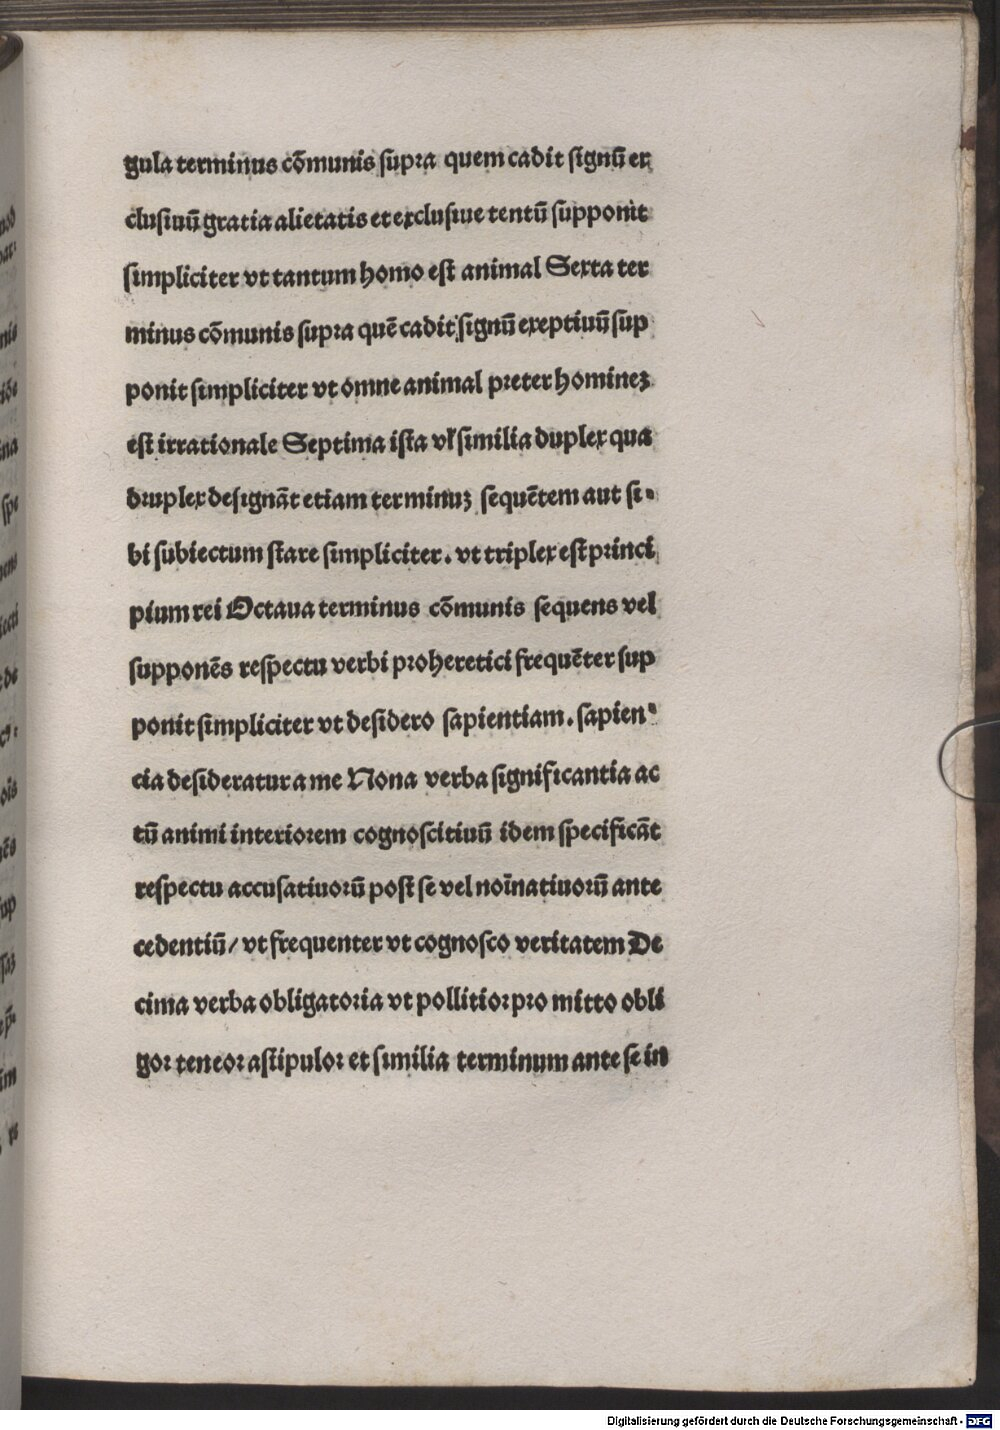 gula terminus cōmunis supra quem cadit signū ex
clusiuū gratia alietatis et exclusiue tentū supponit
simpliciter vt tantum homo est animal Sexta ter
minus cōmunis supra quē cadit signū exeptiuū sup
ponit simpliciter vt omne animal preter hominez
est irrationale Septima ista vł similia duplex qua
druplex designāt etiam terminuz sequētem aut si-
bi subiectum stare simpliciter. vt triplex est princi
pium rei Octaua terminus cōmunis sequens vel
supponēs respectu verbi proheretici frequēter sup
ponit simpliciter vt desidero sapientiam. sapien-
cia desideratur a me Nona verba significantia ac
tū animi interiorem cognoscitiuū idem specificāt
respectu accusatiuorū post se vel noīnatiuorū ante
cedentiū/ vt frequenter vt cognosco veritatem De
cima verba obligatoria vt pollitior pro mitto obli
gor teneor astipulor et similia terminum ante se in
Digitalisierung gefördert durch die Deutsche Forschungsgemeinschaft - DFG